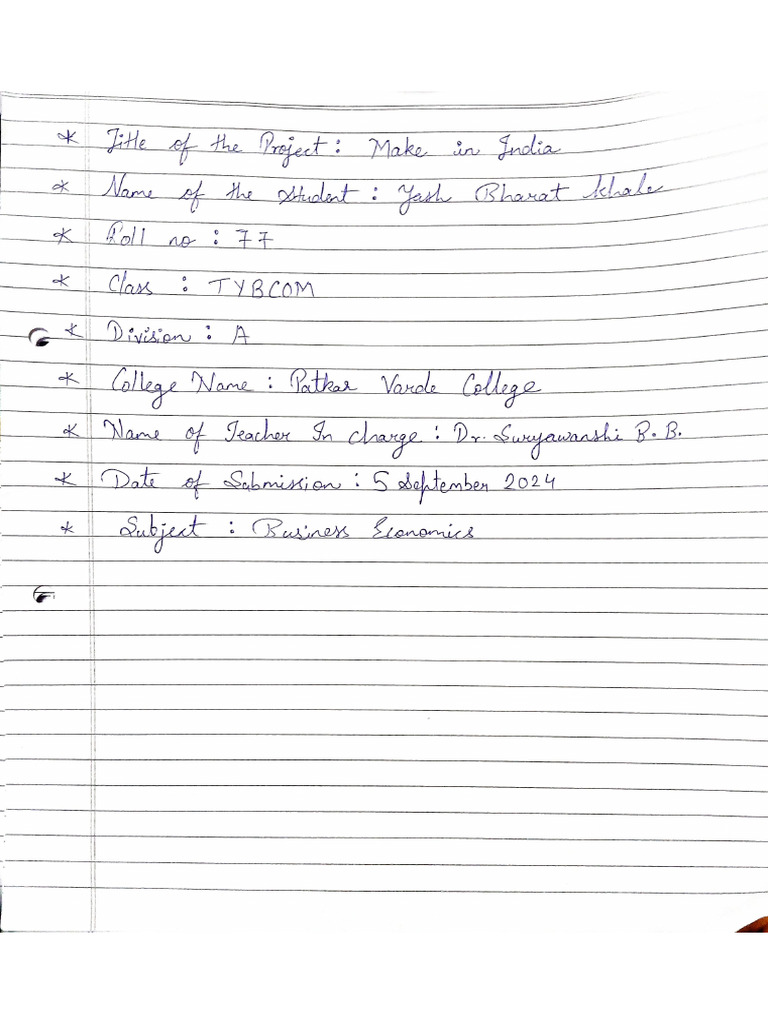 * Title of the Project : Make in India
* Name of the Student : Yash Bharat Khale
* Roll no : 77
* Class : TYBCOM
* Division : A
* College Name : Patkar Varde College
* Name of Teacher In charge : Dr. Suryawanshi B. B.
* Date of Submission : 5 September 2024
* Subject : Business Economics